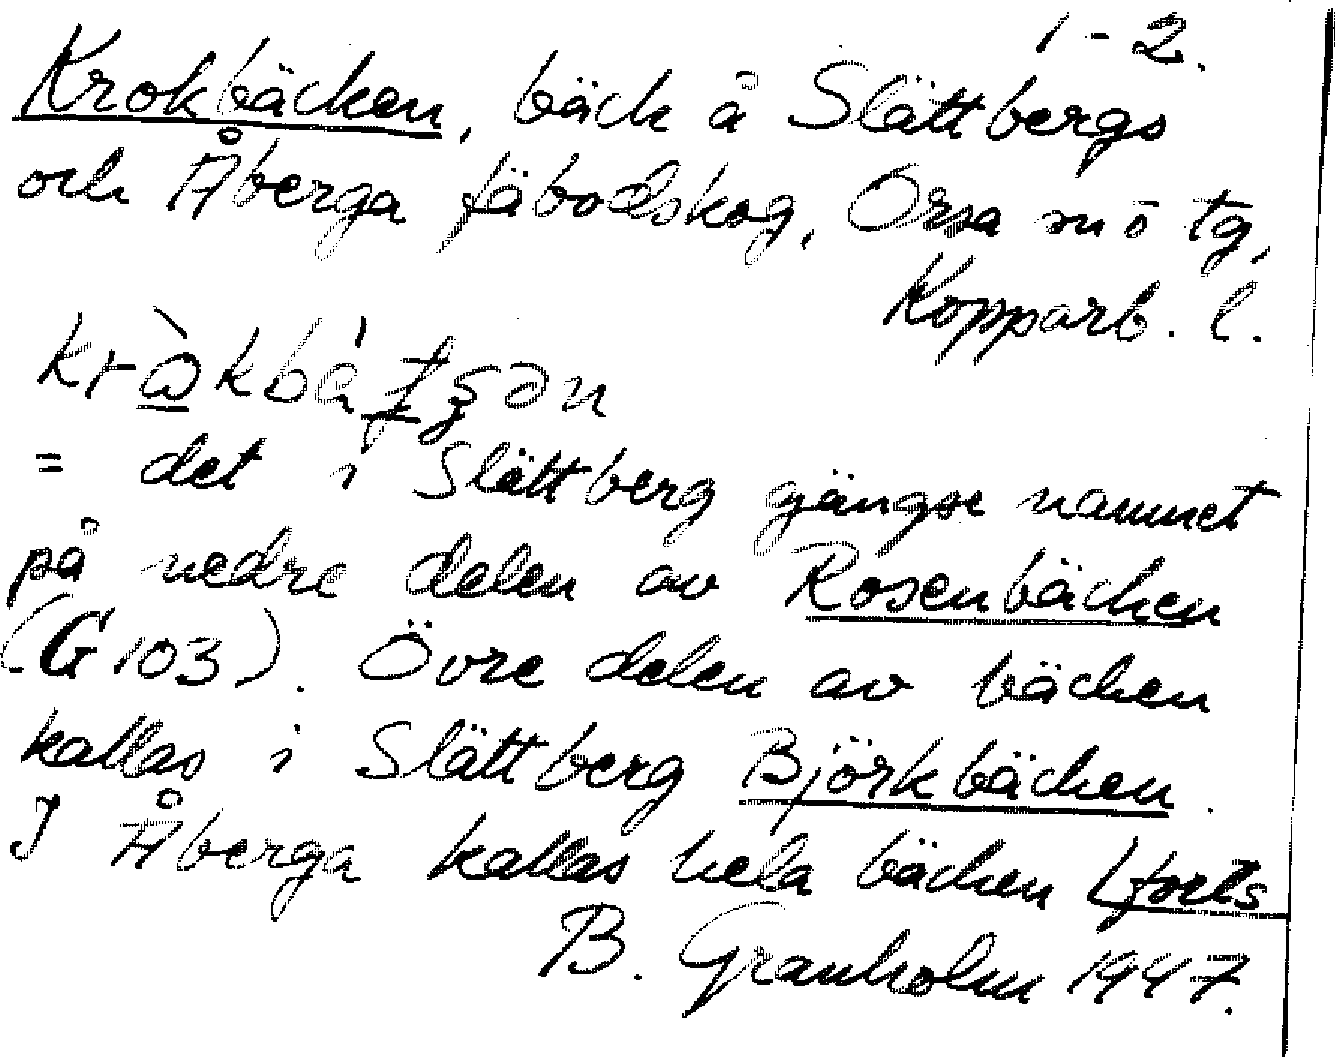 1-2.
Krokbäcken, bäck å Slättbergs
och Åberga fäbodskog, Orsa sn o tg,
Kopparb. l.
= det i Slättberg gängse namnet
på nedre delen av Rosenbäcken
(G 103). Övre delen av bäcken
kallas i Slättberg Björkbäcken.
I Åberga kallas hela bäcken Lforts
B. Granholm 1947.